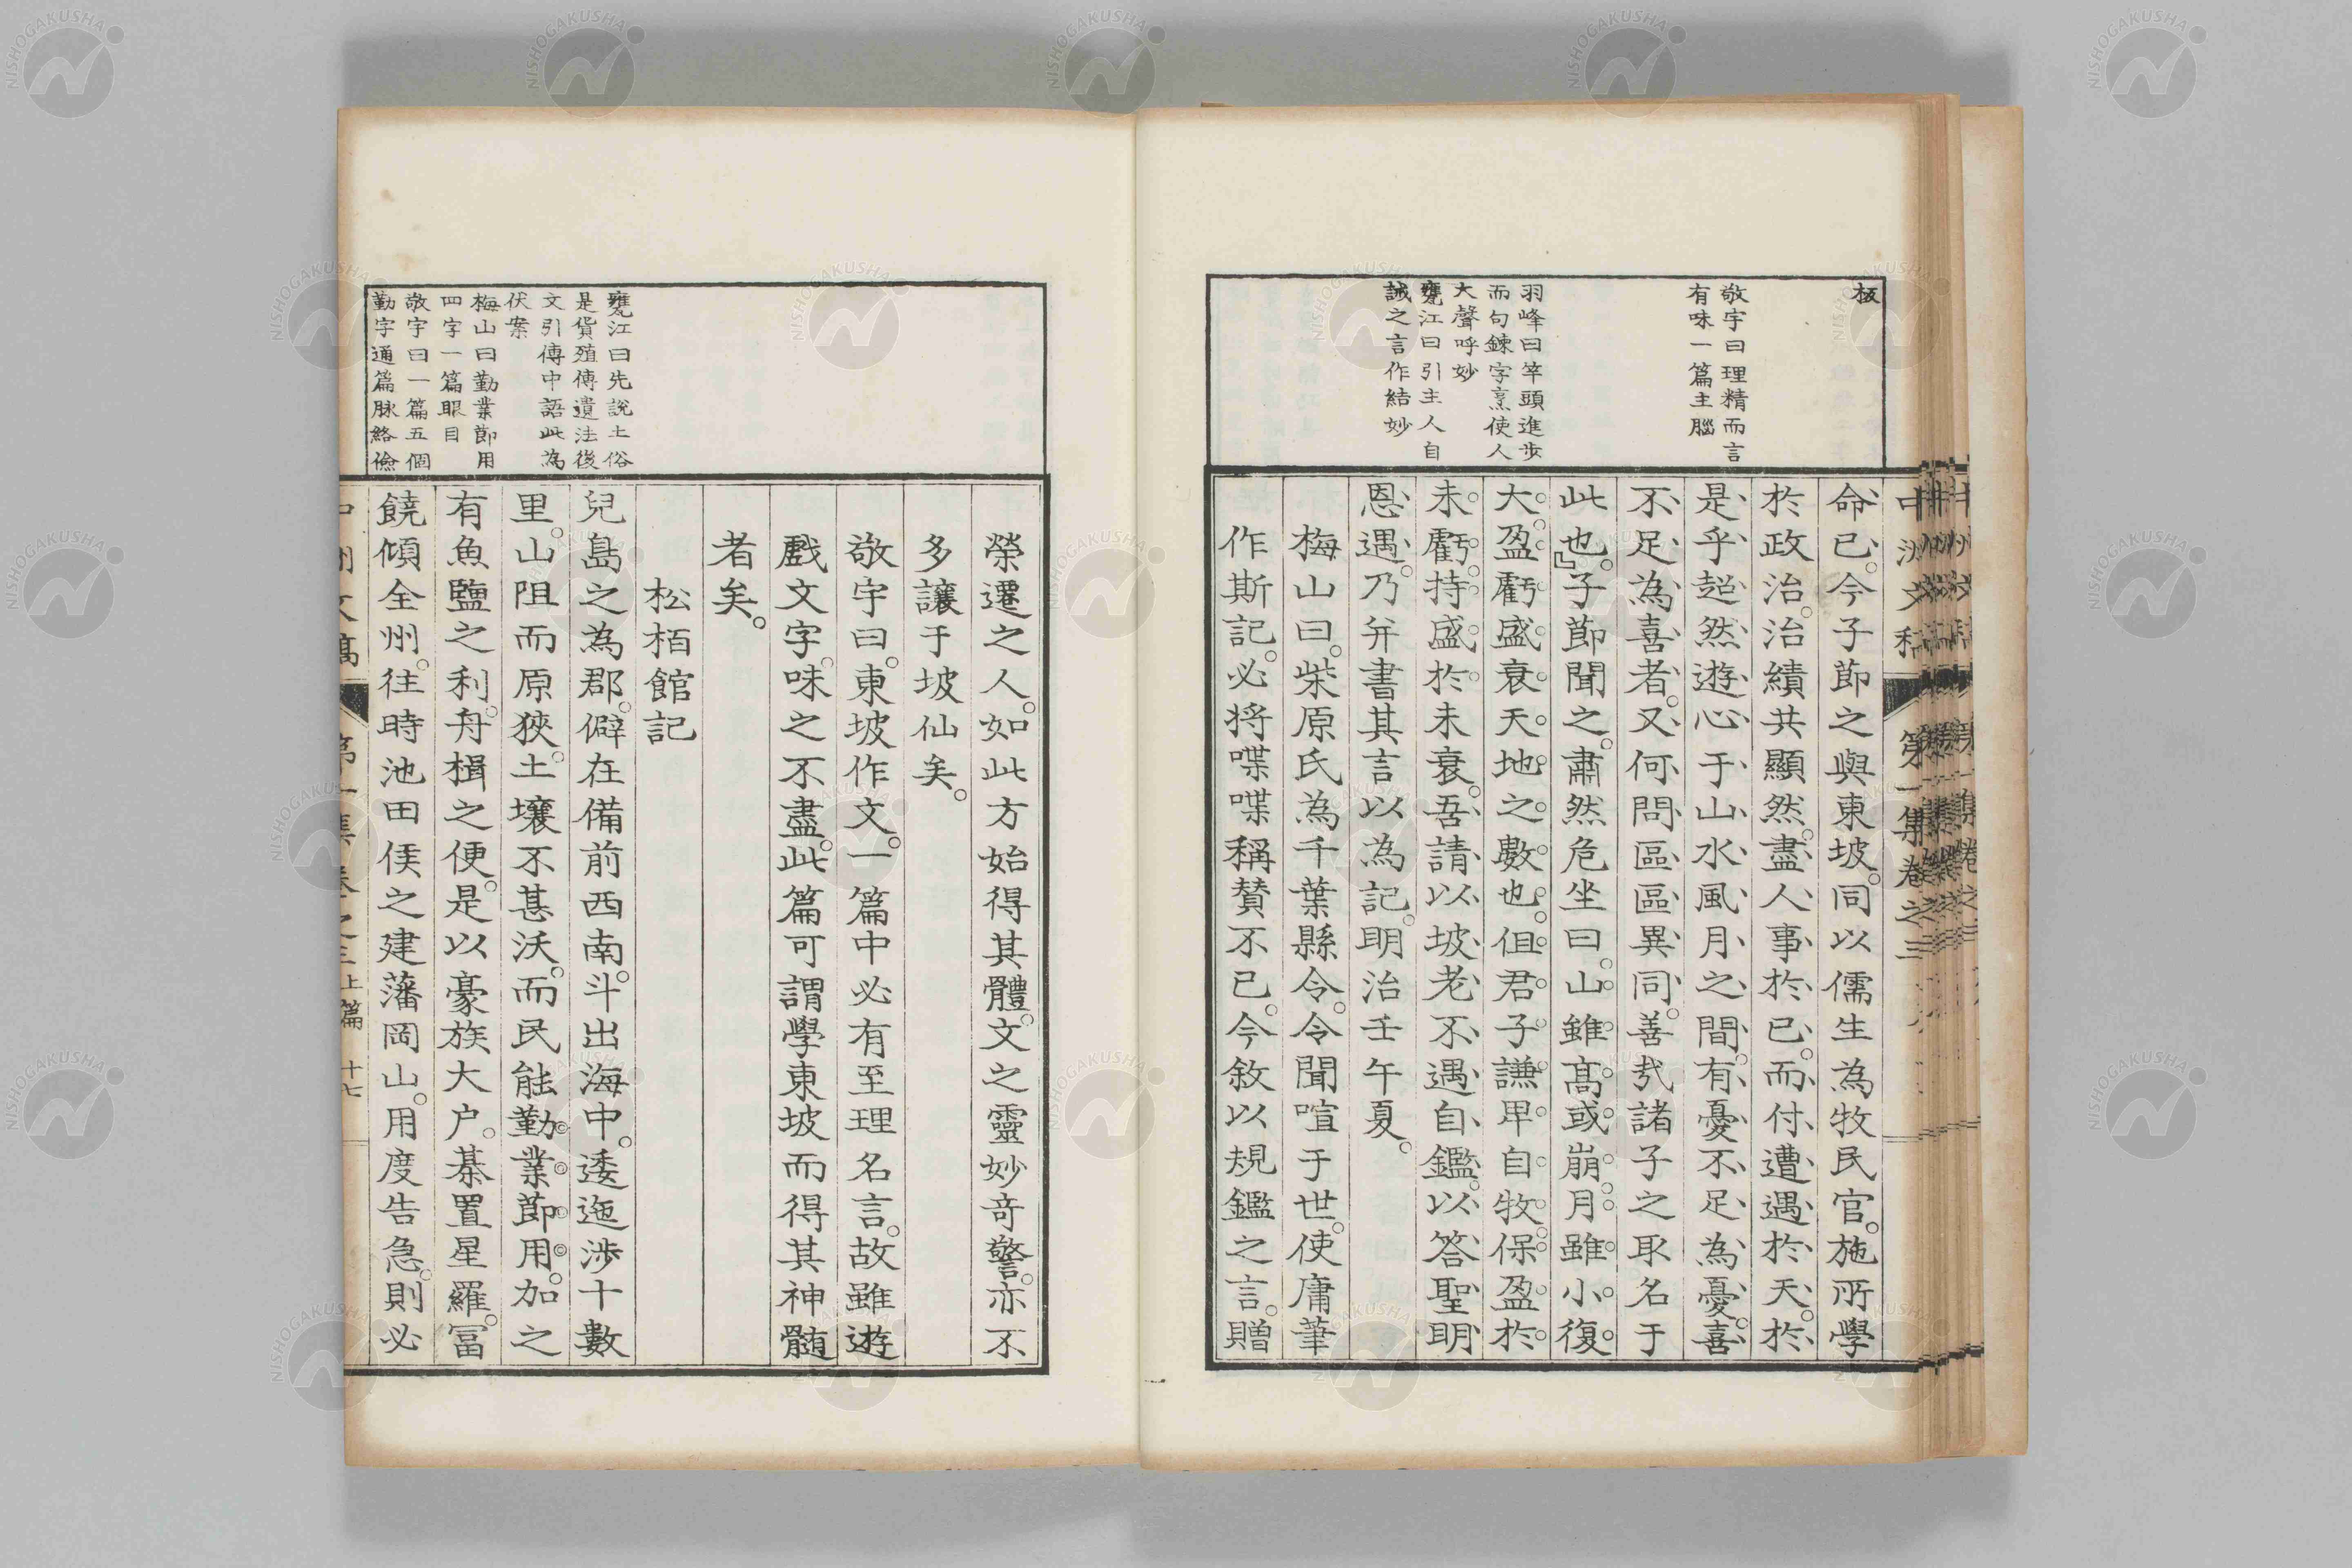 板
敬宇曰理精而言
有味一篇主腦
羽峰曰竿頭進步
而句鍊字烹使人
大聲呼妙
甕江曰引主人自
誡之言作結妙
中洲文稿　第一集卷之三
命已。今子節之與東坡。同以儒生為牧民官。施所學
於政治。治績共顯然。盡人事於已。而付遭遇於天。於
是乎超然遊心于山水風月之間。有憂不足為憂。喜
不足為喜者。又何問區區異同。善哉諸子之取名于
此也。』子節聞之。肅然危坐曰。山雖高或崩。月雖小復
大。盈虧盛衰天地之數也。但君子謙卑自牧。保盈於
未虧。持盛於未衰。吾請以坡老不遇自鑑。以答聖明
恩遇。乃并書其言以為記。明治壬午夏。
梅山曰。柴原氏為千葉縣令。令聞喧于世。使庸筆
作斯記。必將喋喋稱贊不已。今敘以規鑑之言。贈
甕江曰先說土俗
是貨殖傳遺法後
文引傳中語此為
伏案
梅山曰勤業節用
四字一篇眼目
敬宇曰一篇五個
勤字通篇脉絡儉
榮遷之人。如此方始得其體。文之靈妙奇警。亦不
多讓于坡仙矣。
敬宇曰。東坡作文。一篇中必有至理名言。故雖遊
戲文字。味之不盡。此篇可謂學東坡而得其神髓
者矣。
松栢館記
兒島之為郡。僻在備前西南。斗出海中。逶迤涉十數
里。山阻而原狹。土壤不甚沃。而民能勤業節用。加之
有魚鹽之利。舟楫之便。是以豪族大户。棊置星羅。富
饒傾全州。往時池田侯之建藩岡山。用度告急。則必
中洲文稿　第一集卷之三上篇　十七